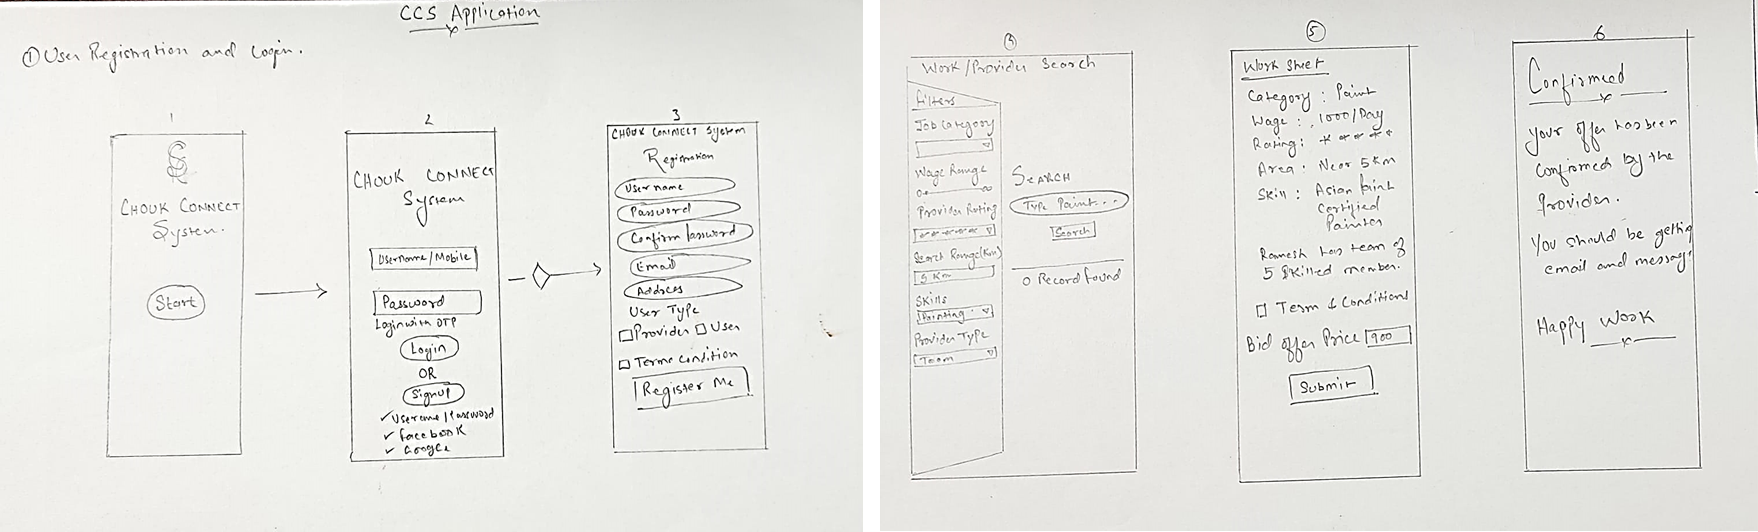 CCS Application
① User Registration and Login.
1
CHOUK CONNECT
System.
Start
2
CHOUK CONNECT
System
Username/Mobile
Password
Login with OTP
Login
OR
Signup
✓ Username/Password
✓ facebook
✓ Google
3
CHOUK CONNECT System
Registration
User name
Password
Confirm Password
Email
Address
User Type
Provider User
Terms Condition
Register Me
4
Work/Provider Search
Filters
Job Category
Wage Range
Provider Rating
*******
Search Range(Km)
5 Km
Skills
Painting
Provider Type
Team
SEARCH
Type Paint...
Search
0 Record found
⑤
Work Sheet
Category : Paint
Wage : 1000/Day
Rating : *****
Area : Near 5 Km
Skill : Asian Paint
Certified
Painter
Ramesh has team of
5 Skilled member.
Term & Conditions
Bid offer Price 900
Submit
6
Confirmed
Your offer has been
confirmed by the
Provider.
You should be getting
email and message
Happy Work